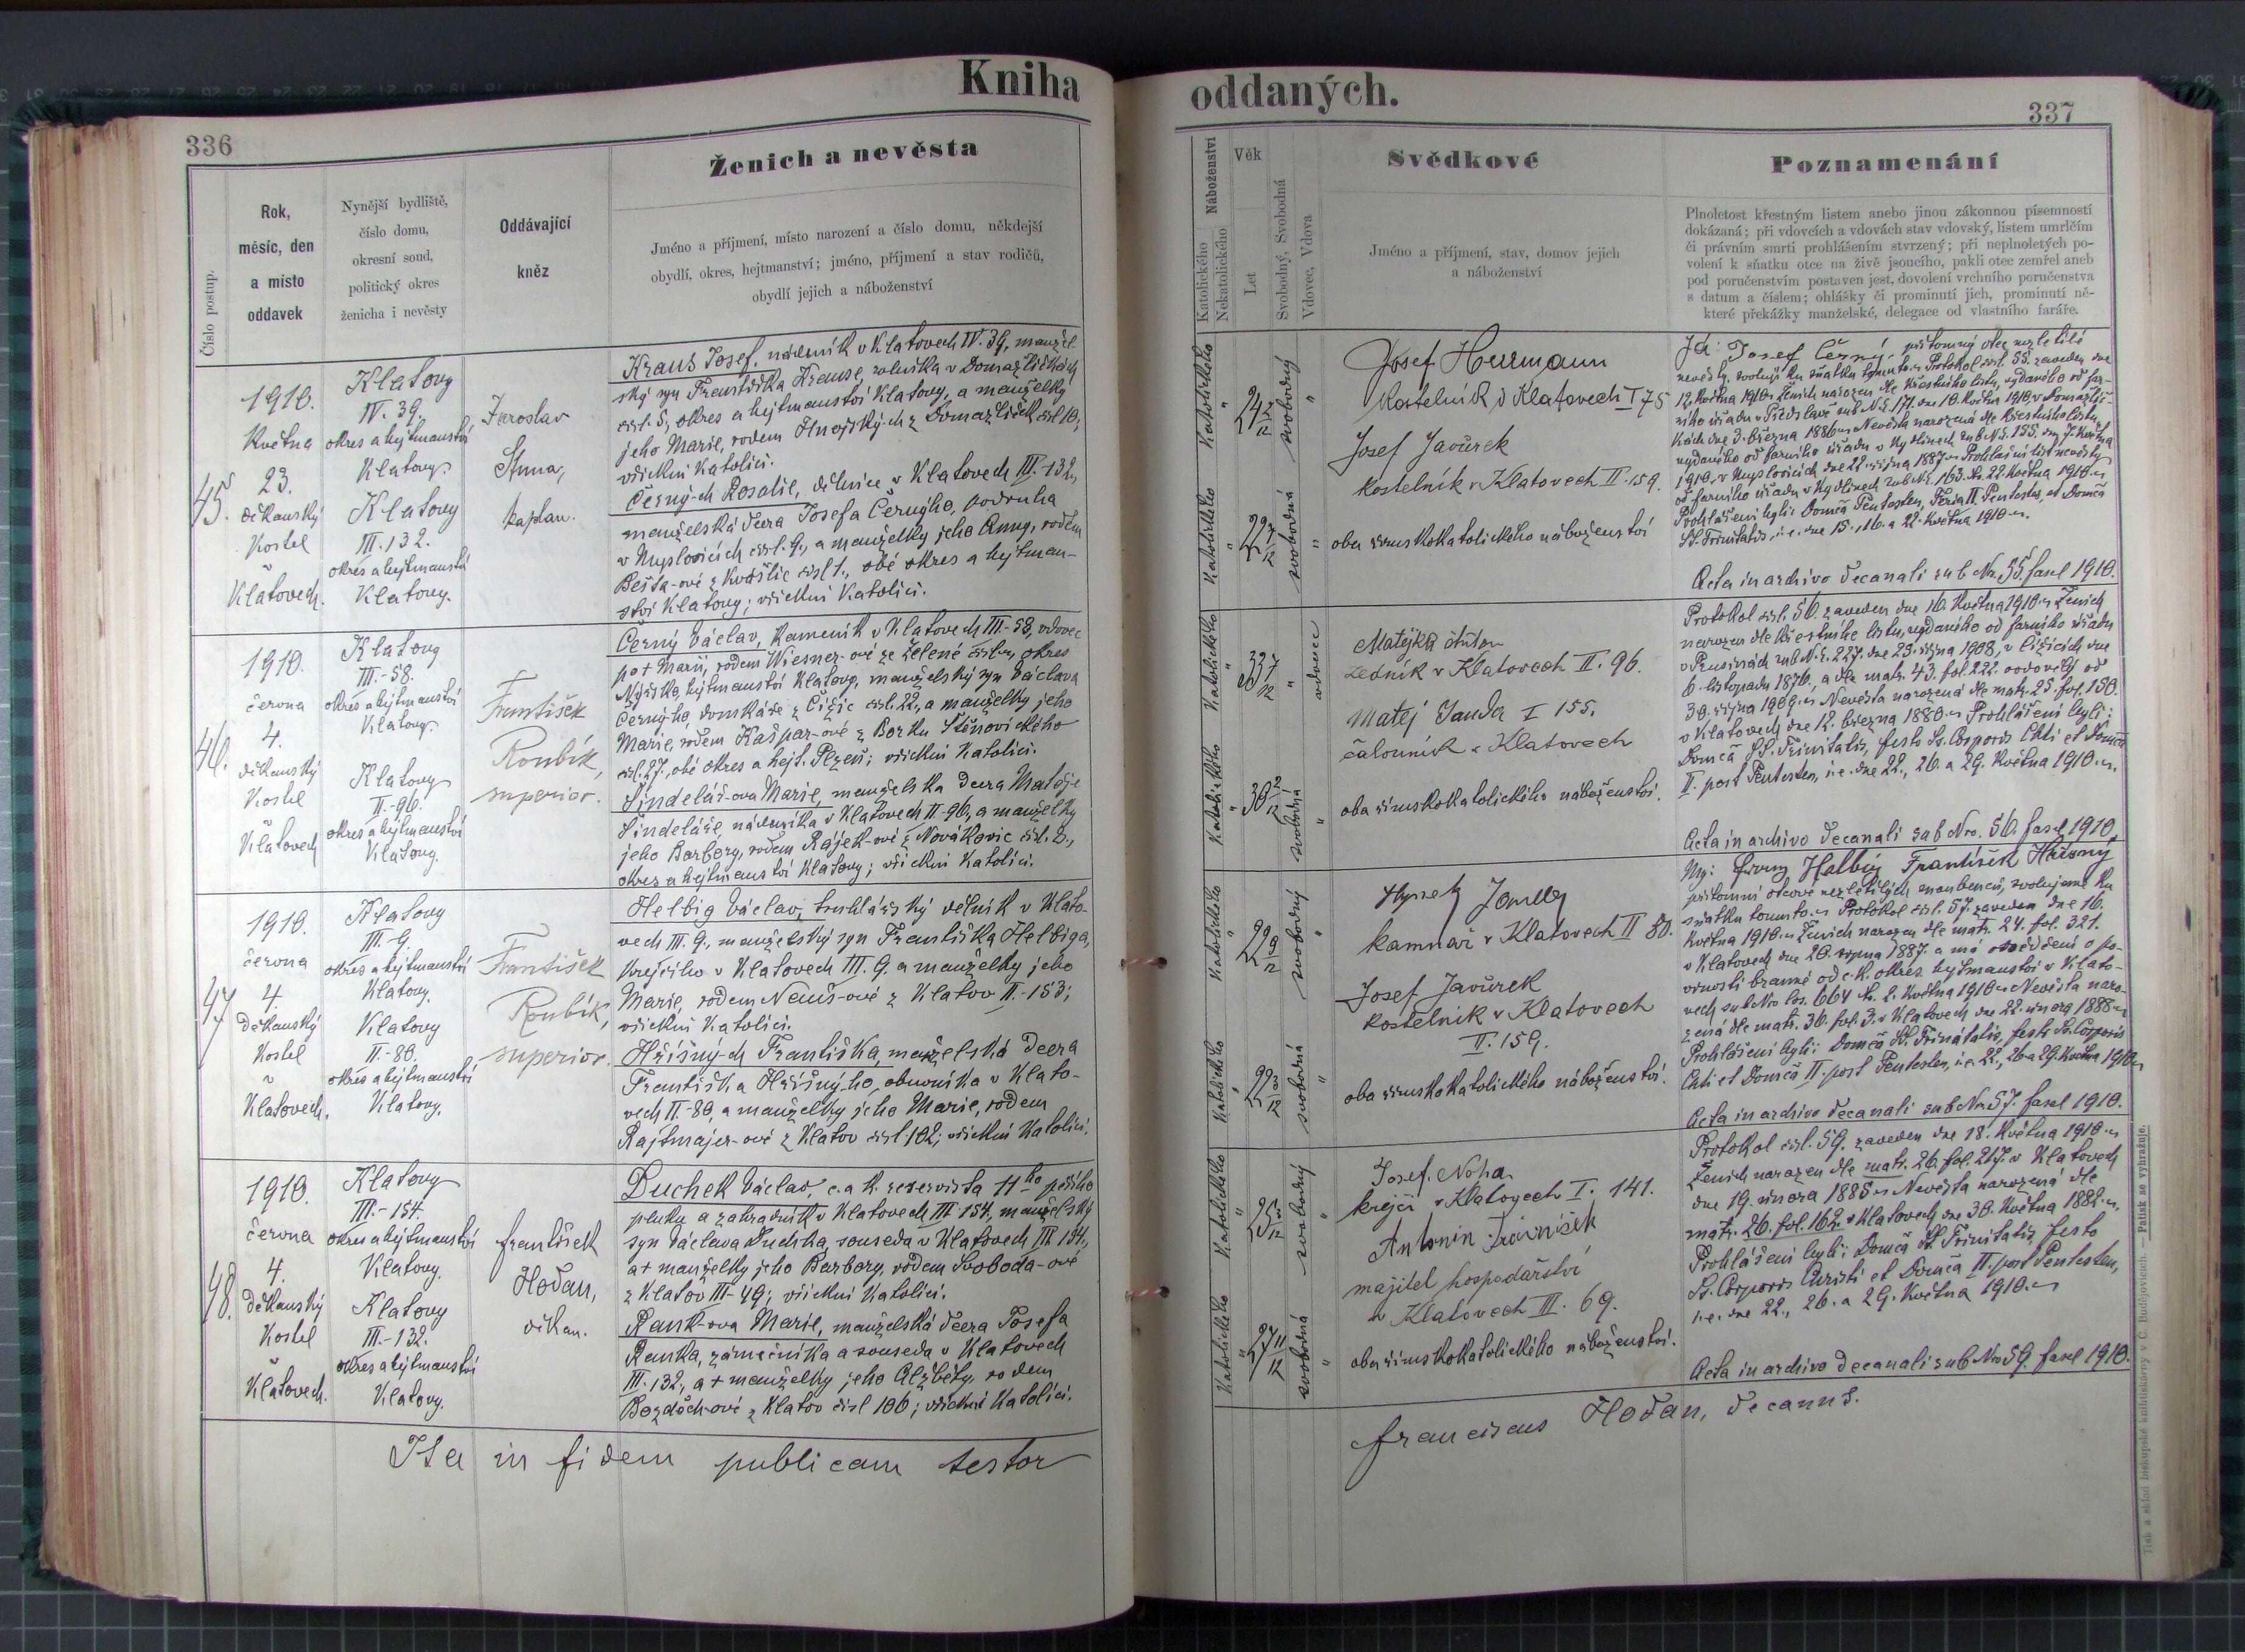 Kniha
oddaných.
336
337
Číslo postup.
Rok,
měsíc, den
a místo
oddavek
Nynější bydliště,
číslo domu,
okresní soud,
politický okres
ženicha i nevěsty
Oddávající
kněz
Ženich a nevěsta
Jméno a příjmení, místo narození a číslo domu, někdejší
obydlí, okres, hejtmanství; jméno, příjmení a stav rodičů,
obydlí jejich a náboženství
Náboženství
Katolického
Nekatolického
Věk
Let
Svobodný, Svobodná
Vdovec, Vdova
Svědkové
Jméno a příjmení, stav, domov jejich
a náboženství
Poznamenání
Plnoletost křestným listem anebo jinou zákonnou písemností
dokázaná; při vdovcích a vdovách stav vdovský, listem umrlčím
či právním smrti prohlášením stvrzený; při neplnoletých po-
volení k sňatku otce na živě jsoucího, pakli otec zemřel aneb
pod poručenstvím postaven jest, dovolení vrchního poručenstva
s datum a číslem; ohlášky či prominutí jich, prominutí ně-
které překážky manželské, delegace od vlastního faráře.
45.
1910.
května
23.
děkanský
kostel
v
Klatovech.
Klatovy
IV. 39.
okres a hejtmanství
Klatovy.
Klatovy
III. 132.
okres a hejtmanství
Klatovy.
Jaroslav
kaplan.
Kraus Josef, nádenník v Klatovech IV. 39, manžel-
ský syn Františka Krause, rolníka v Domažličkách
čísl. 5, okres a hejtmanství Klatovy, a manželky
jeho Marie, rodem Hnojských z Domažliček čísl 10;
všickni katolíci.
Černý-ch Rosalie, dělnice v Klatovech III.-132,
manželská dcera Josefa Černýho, podruha
v Myslovicích čísl. 9., a manželky jeho Anny, rodem
Bešta-ové z Kvášlic čísl 1., obé okres a hejtman-
ství Klatovy; všickni katolíci.
Katolického
"
24
12
svobodný
"
Katolického
"
22 7
12
svobodná
"
Josef Herrmann
kostelník v Klatovech I 75
Josef Javůrek
kostelník v Klatovech II. 159.
oba římskokatolického náboženství
Já: Josef Černý, přítomný otec nezletilé
nevěsty, svoluji ku sňatku tomuto. Protokol čísl. 55. zaveden dne
12. května 1910. Ženich narozen dle křestního listu, vydaného od far-
ního úřadu v Předslavi sub N.E. 171. dne 10. května 1910. v Domažlič-
kách dne 3. března 1886. Nevěsta narozená dle křestního listu,
vydaného od farního úřadu v Kydlinech sub N.E. 155. dne 7. května
1910. v Myslovicích dne 22. října 1887. Prohlašní list nevěsty
od farního úřadu v Kydlinech sub N.E. 163. dto. 22. května 1910.
Prohlášení byli: Domca Pentecostes, Feria II. Pentecostes, et Domca
SS. Trinitatis, i. e. dne 15., 16. a 22. května 1910.
Acta in archivo decanali sub Nr. 55. fasc 1910.
46.
1910.
června
4.
děkanský
kostel
v
Klatovech
Klatovy
III.-58.
okres a hejtmanství
Klatovy.
Klatovy
II.-96.
okres a hejtmanství
Klatovy.
František
Roubík,
superior.
Černý Václav, kameník v Klatovech III.-58, vdovec
po + Marii, rodem Wiesner-ové ze Zelené čísl., okres
Nýrsko, hejtmanství Klatovy, manželský syn Václava
Černýho, domkáře z Čižic čísl. 22., a manželky jeho
Marie, rodem Kašpar-ové z Borku Štěnovického
čísl. 27., obé okres a hejt. Plzeň; všickni katolíci.
Šindelář-ova Marie, manželská dcera Matěje
Šindeláře, nádenníka v Klatovech II.-96, a manželky
jeho Barbory, rodem Rájek-ové z Novákovic čísl. 2.,
okres a hejtmanství Klatovy; všickni katolíci.
Katolického
"
33 7
12
"
vdovec
Katolického
"
30 2
12
svobodná
"
Matějka Anton
zedník v Klatovech II. 96.
Matěj Janda I 155.
čalouník v Klatovech
oba římskokatolického náboženství.
Protokol čísl. 56. zaveden dne 16. května 1910. Ženich
narozen dle křestního listu, vydaného od farního úřadu
v Prusinách sub N.E. 227. dne 29. října 1908, v Čižicích dne
6. listopadu 1876., a dle matr. 43. fol. 222. ovdovělý od
30. října 1909. Nevěsta narozená dle matr. 25. fol. 150.
v Klatovech dne 12. března 1880. Prohlášení byli:
Domca SS. Trinitatis, festo Ss. Corporis Chti et Domca
II. post Pentecosten, i. e. dne 22., 26. a 29. května 1910.
Acta in archivo decanali sub Nro. 56. fasc 1910.
47.
1910.
června
4.
Děkanský
kostel
v
Klatovech.
Klatovy
III.-9.
okres a hejtmanství
Klatovy.
Klatovy
II.-80.
okres a hejtmanství
Klatovy.
František
Roubík,
superior.
Helbig Václav, truhlářský dělník v Klato-
vech III. 9., manželský syn Františka Helbiga,
krejčího v Klatovech III. 9. a manželky jeho
Marie, rodem Neuš-ové z Klatov II.-153;
všickni katolíci.
Hříšný-ch Františka, manželská dcera
Františka Hříšnýho, obuvníka v Klato-
vech II.-80, a manželky jeho Marie, rodem
Rajtmajer-ové z Klatov čísl. 102; všickni katolíci.
Katolického
"
22 9
12
svobodný
"
Katolického
"
22 3
12
svobodná
"
Hynek Janda
kamnář v Klatovech II 80.
Josef Javůrek
kostelník v Klatovech
II. 159.
oba římskokatolického náboženství.
My: Franz Helbig František Hříšný
přítomní otcové nezletilých snoubenců, svolujeme ku
sňatku tomuto. Protokol čísl. 57. zaveden dne 16.
května 1910. Ženich narozen dle matr. 24. fol. 321.
v Klatovech dne 20. srpna 1887. a má osvědčení o po-
vinnosti branné od c. k. okres. hejtmanství v Klato-
vech sub Nro 664 dto. 2. května 1910. Nevěsta naro-
zená dle matr. 36. fol. 3. v Klatovech dne 22. února 1888.
Prohlášení byli: Domca SS. Trinitatis, festo Ss. Corporis
Chti et Domca II. post Pentecosten, i. e. 22., 26. a 29. května 1910.
Acta in archivo decanali sub Nro 57. fasc 1910.
48.
1910.
června
4.
Děkanský
kostel
v
Klatovech.
Klatovy
III.-154.
okres a hejtmanství
Klatovy.
Klatovy
III.-132.
okres a hejtmanství
Klatovy.
František
Hoďan,
děkan.
Duchek Václav, c. a k. reservista 11ho pěšího
pluku a zahradník v Klatovech III 154., manželský
syn Václava Duchka, souseda v Klatovech III. 154.,
a + manželky jeho Barbory, rodem Svoboda-ové
z Klatov III-49; všickni katolíci.
Rank-ova Marie, manželská dcera Josefa
Ranka, zámečníka a souseda v Klatovech
III. 132., a + manželky jeho Alžběty, rodem
Bozděch-ové z Klatov čísl 106; všickni katolíci.
Katolického
"
25
12
svobodný
"
Katolického
"
27 11
12
svobodná
"
Josef Noha
krejčí v Klatovech I. 141.
Antonín Trávníček
majitel hospodářství
v Klatovech III. 69.
oba římskokatolického náboženství.
Protokol čísl. 59. zaveden dne 18. května 1910.
Ženich narozen dle matr. 26. fol. 217. v Klatovech
dne 19. února 1885. Nevěsta narozená dle
matr. 26. fol. 162. v Klatovech dne 30. května 1882.
Prohlášení byli: Domca SS. Trinitatis, festo
Ss. Corporis Christi et Domca II. post Pentecosten,
i. e. dne 22., 26. a 29. května 1910.
Acta in archivo decanali sub Nro 59. fasc 1910.
Ita in fidem publicam testor
Franciscus Hoďan, decanus.
Tisk a sklad biskupské knihtiskárny v Č. Budějovicích. — Patisk se vyhražuje.